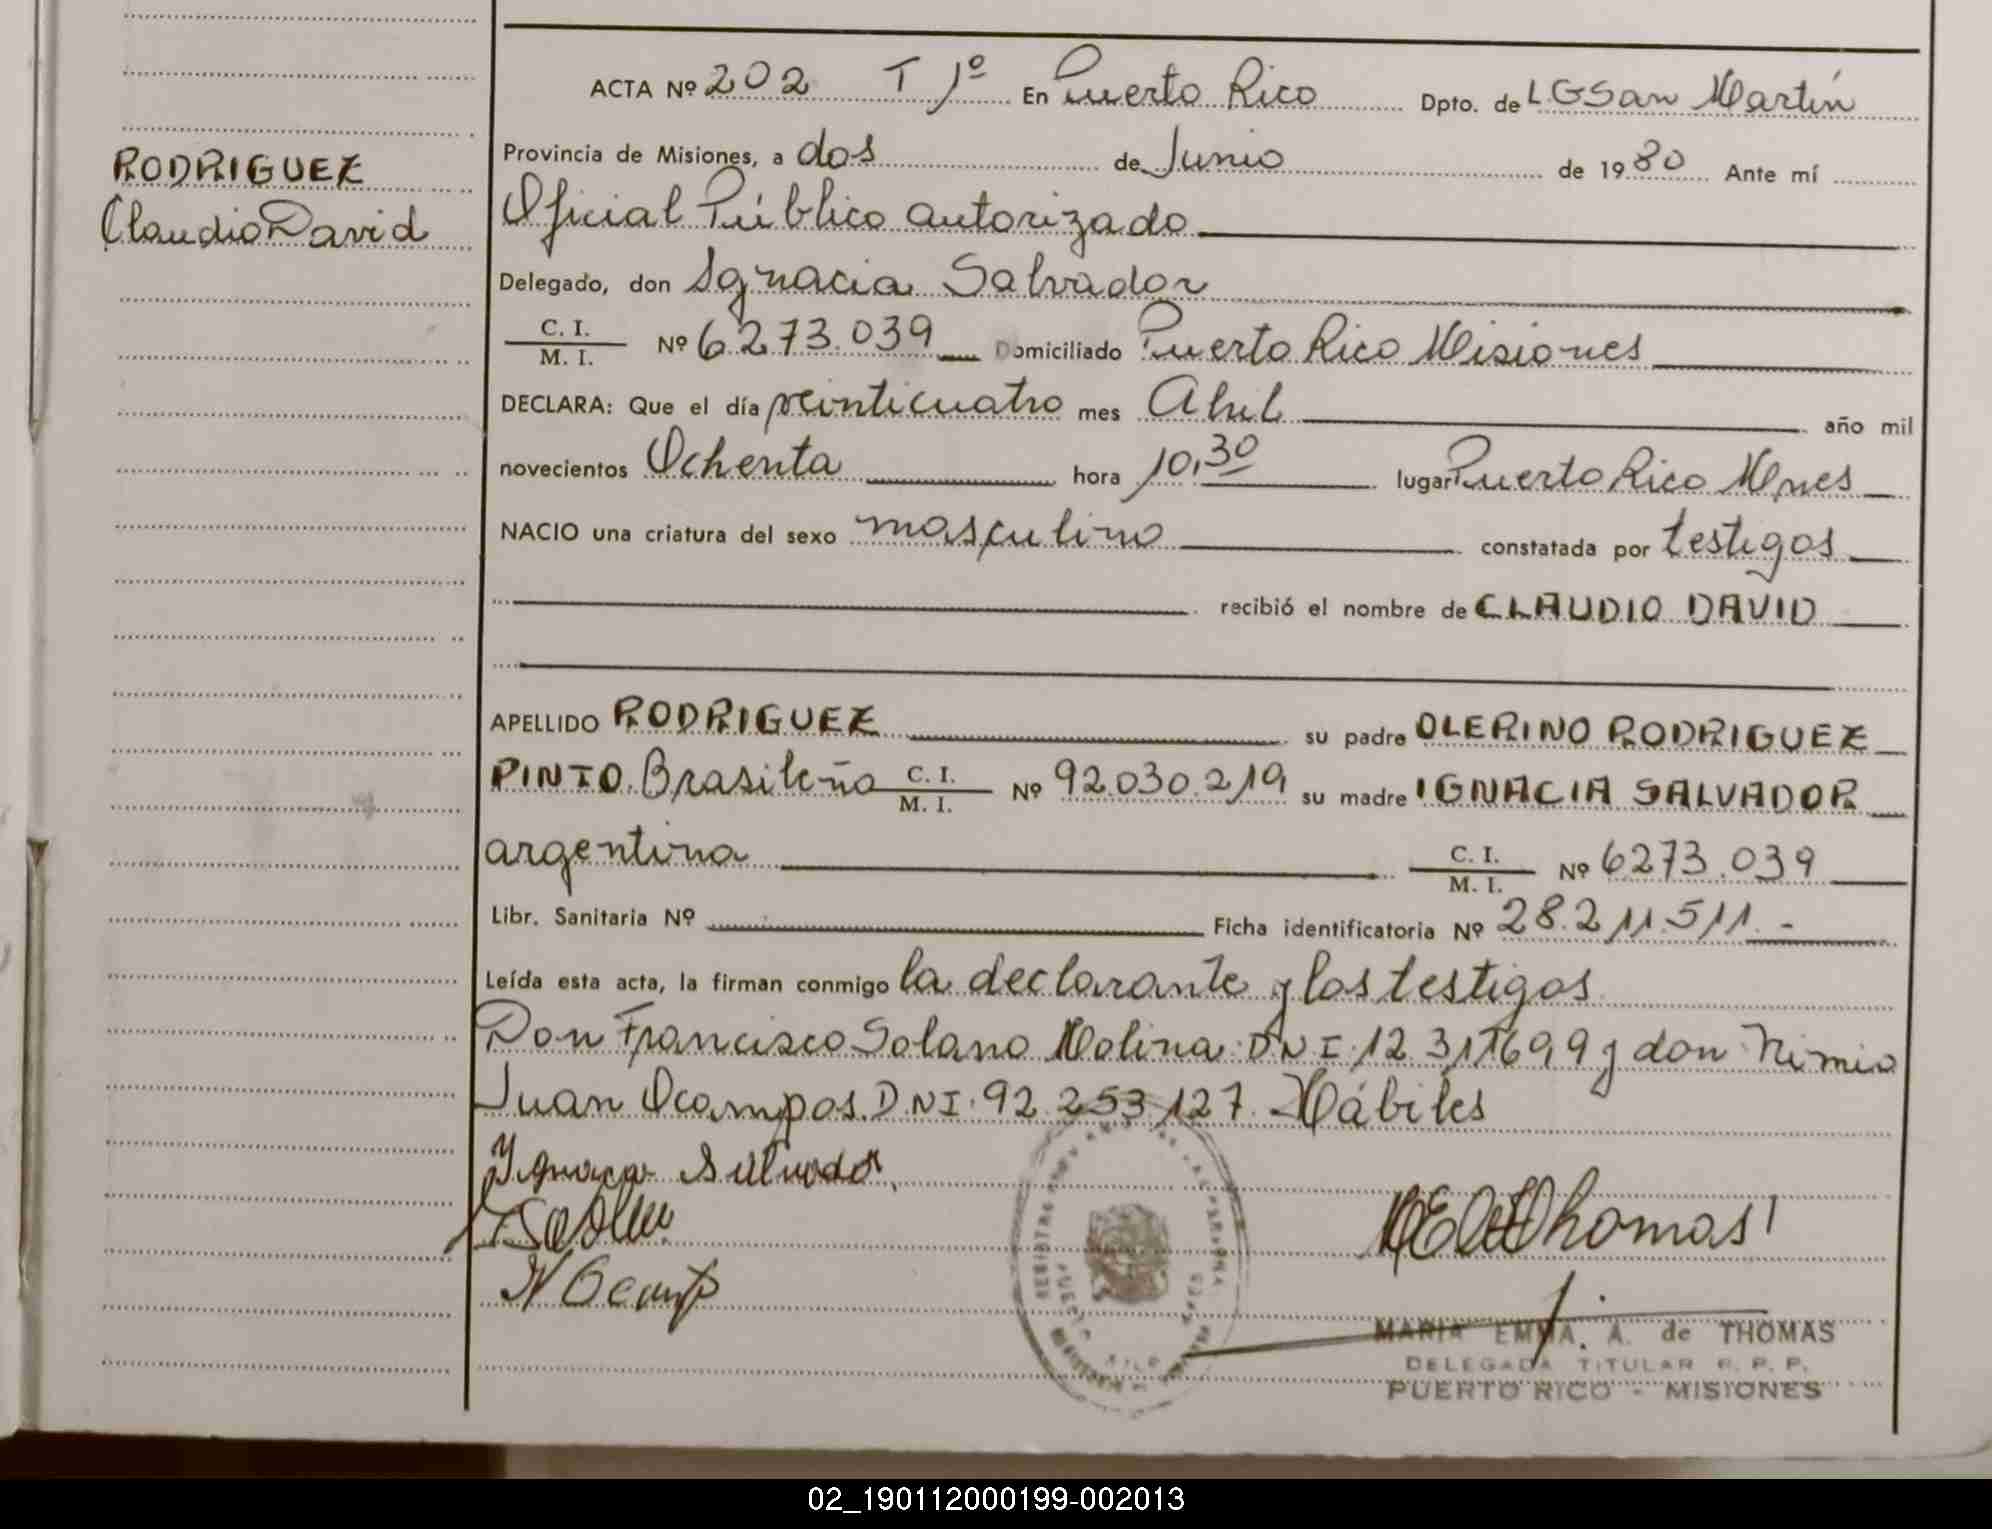 RODRIGUEZ
Claudio David
ACTA Nº 202 T 1º En Puerto Rico Dpto. de L G San Martín
Provincia de Misiones, a dos de Junio de 1980 Ante mí
Oficial Público autorizado
Delegado, don Ignacia Salvador
C. I. / M. I. Nº 6.273.039 Domiciliado Puerto Rico Misiones
DECLARA: Que el día veinticuatro mes Abril año mil
novecientos Ochenta hora 10,30 lugar Puerto Rico Mnes
NACIO una criatura del sexo masculino constatada por testigos
recibió el nombre de CLAUDIO DAVID
APELLIDO RODRIGUEZ su padre OLERINO RODRIGUEZ
PINTO. Brasileño C. I. / M. I. Nº 92.030.219 su madre IGNACIA SALVADOR
argentina C. I. / M. I. Nº 6273.039
Libr. Sanitaria Nº Ficha identificatoria Nº 28.211.511.-
Leída esta acta, la firman conmigo la declarante y los testigos
Don Francisco Solano Molina DNI 12 317699 y don Nimio
Juan Ocampos. D.N.I. 92.253.127. Hábiles
Ignaca Salvador
N Ocamp
MEA de Thomas
MARIA EMMA. A. de THOMAS
DELEGADA TITULAR R. P. P.
PUERTO RICO - MISIONES
02_190112000199-002013